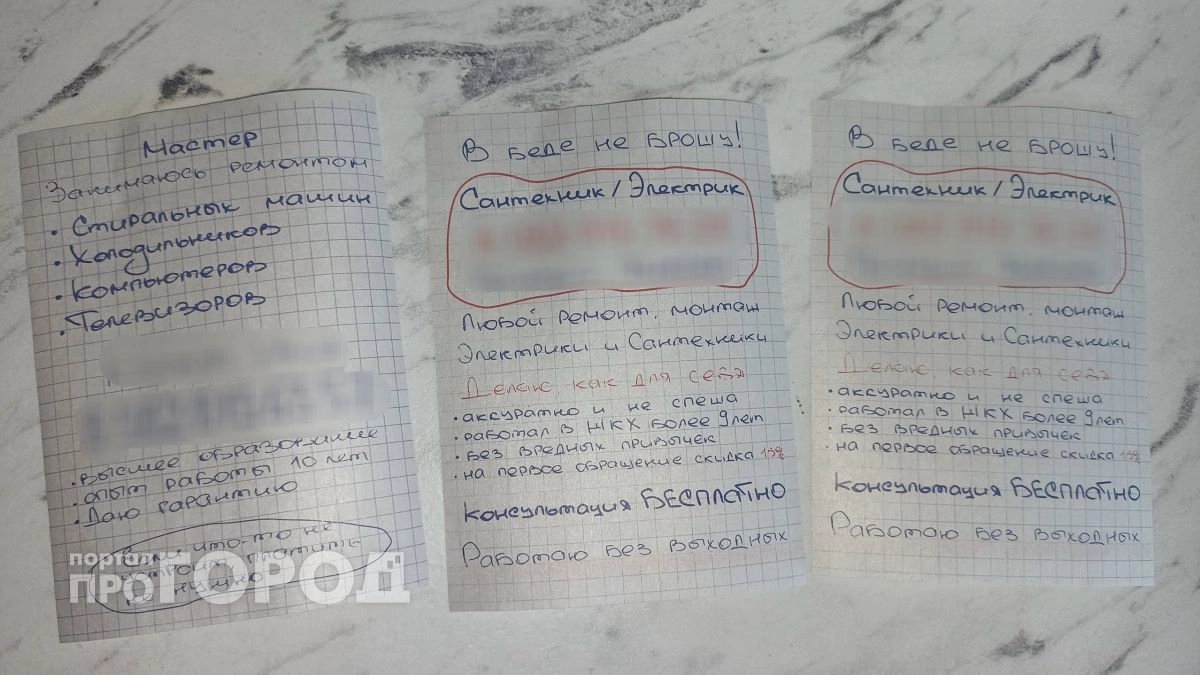 Мастер
Занимаюсь ремонтом
• Стиральных машин
• Холодильников
• Компьютеров
• Телевизоров
• высшее образование
• опыт работы 10 лет
• Даю гарантию
что-то не
платить
не нужно
портал
проГОРОД
В беде не брошу!
Сантехник/Электрик
Любой ремонт, монтаж
Электрики и Сантехники
Делаю, как для себя
• аккуратно и не спеша
• работал в ЖКХ более 9 лет
• без вредных привычек
• на первое обращение скидка 15%
Консультация БЕСПЛАТНО
Работаю без выходных
В беде не брошу!
Сантехник/Электрик
Любой ремонт, монтаж
Электрики и Сантехники
Делаю, как для себя
• аккуратно и не спеша
• работал в ЖКХ более 9 лет
• без вредных привычек
• на первое обращение скидка 15%
Консультация БЕСПЛАТНО
Работаю без выходных